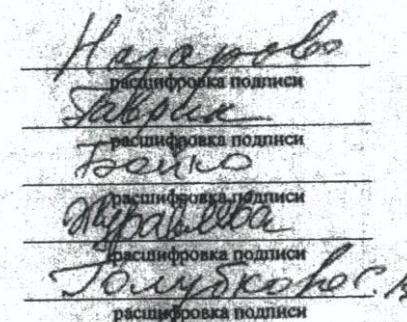 Назарова
расшифровка подписи
Гаврик
расшифровка подписи
Бойко
расшифровка подписи
Журавлева
расшифровка подписи
Голубкова С.
расшифровка подписи